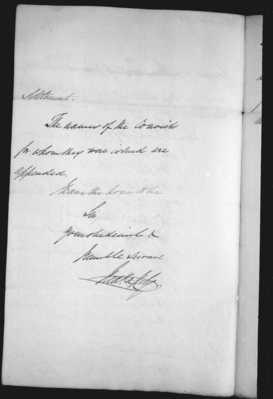 Settlement.
The names of the Convicts
for whom they were issued are
appended
I have the honor to be
Sir
your obedient &
humble Servant